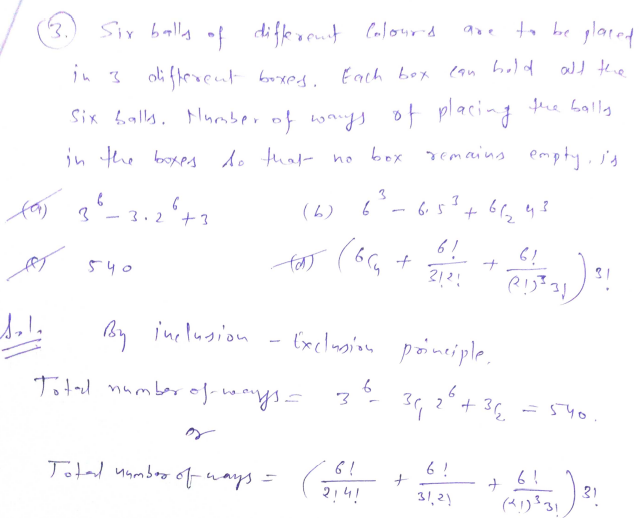 (3.) Six balls of different Colours are to be placed
in 3 different boxes. Each box can hold all the
six balls. Number of ways of placing the balls
in the boxes so that no box remains empty, is
(a) 3^6 - 3.2^6 + 3 (b) 6^3 - 6.5^3 + 6C_2 4^3
(c) 540 (d) (6C_4 + 6!/(3!2!) + 6!/((2!)^3 3!)) 3!
Sol. By inclusion - Exclusion principle.
Total number of ways = 3^6 - 3C_1 2^6 + 3C_2 = 540.
or
Total number of ways = (6!/(2!4!) + 6!/(3!2!) + 6!/((2!)^3 3!)) 3!